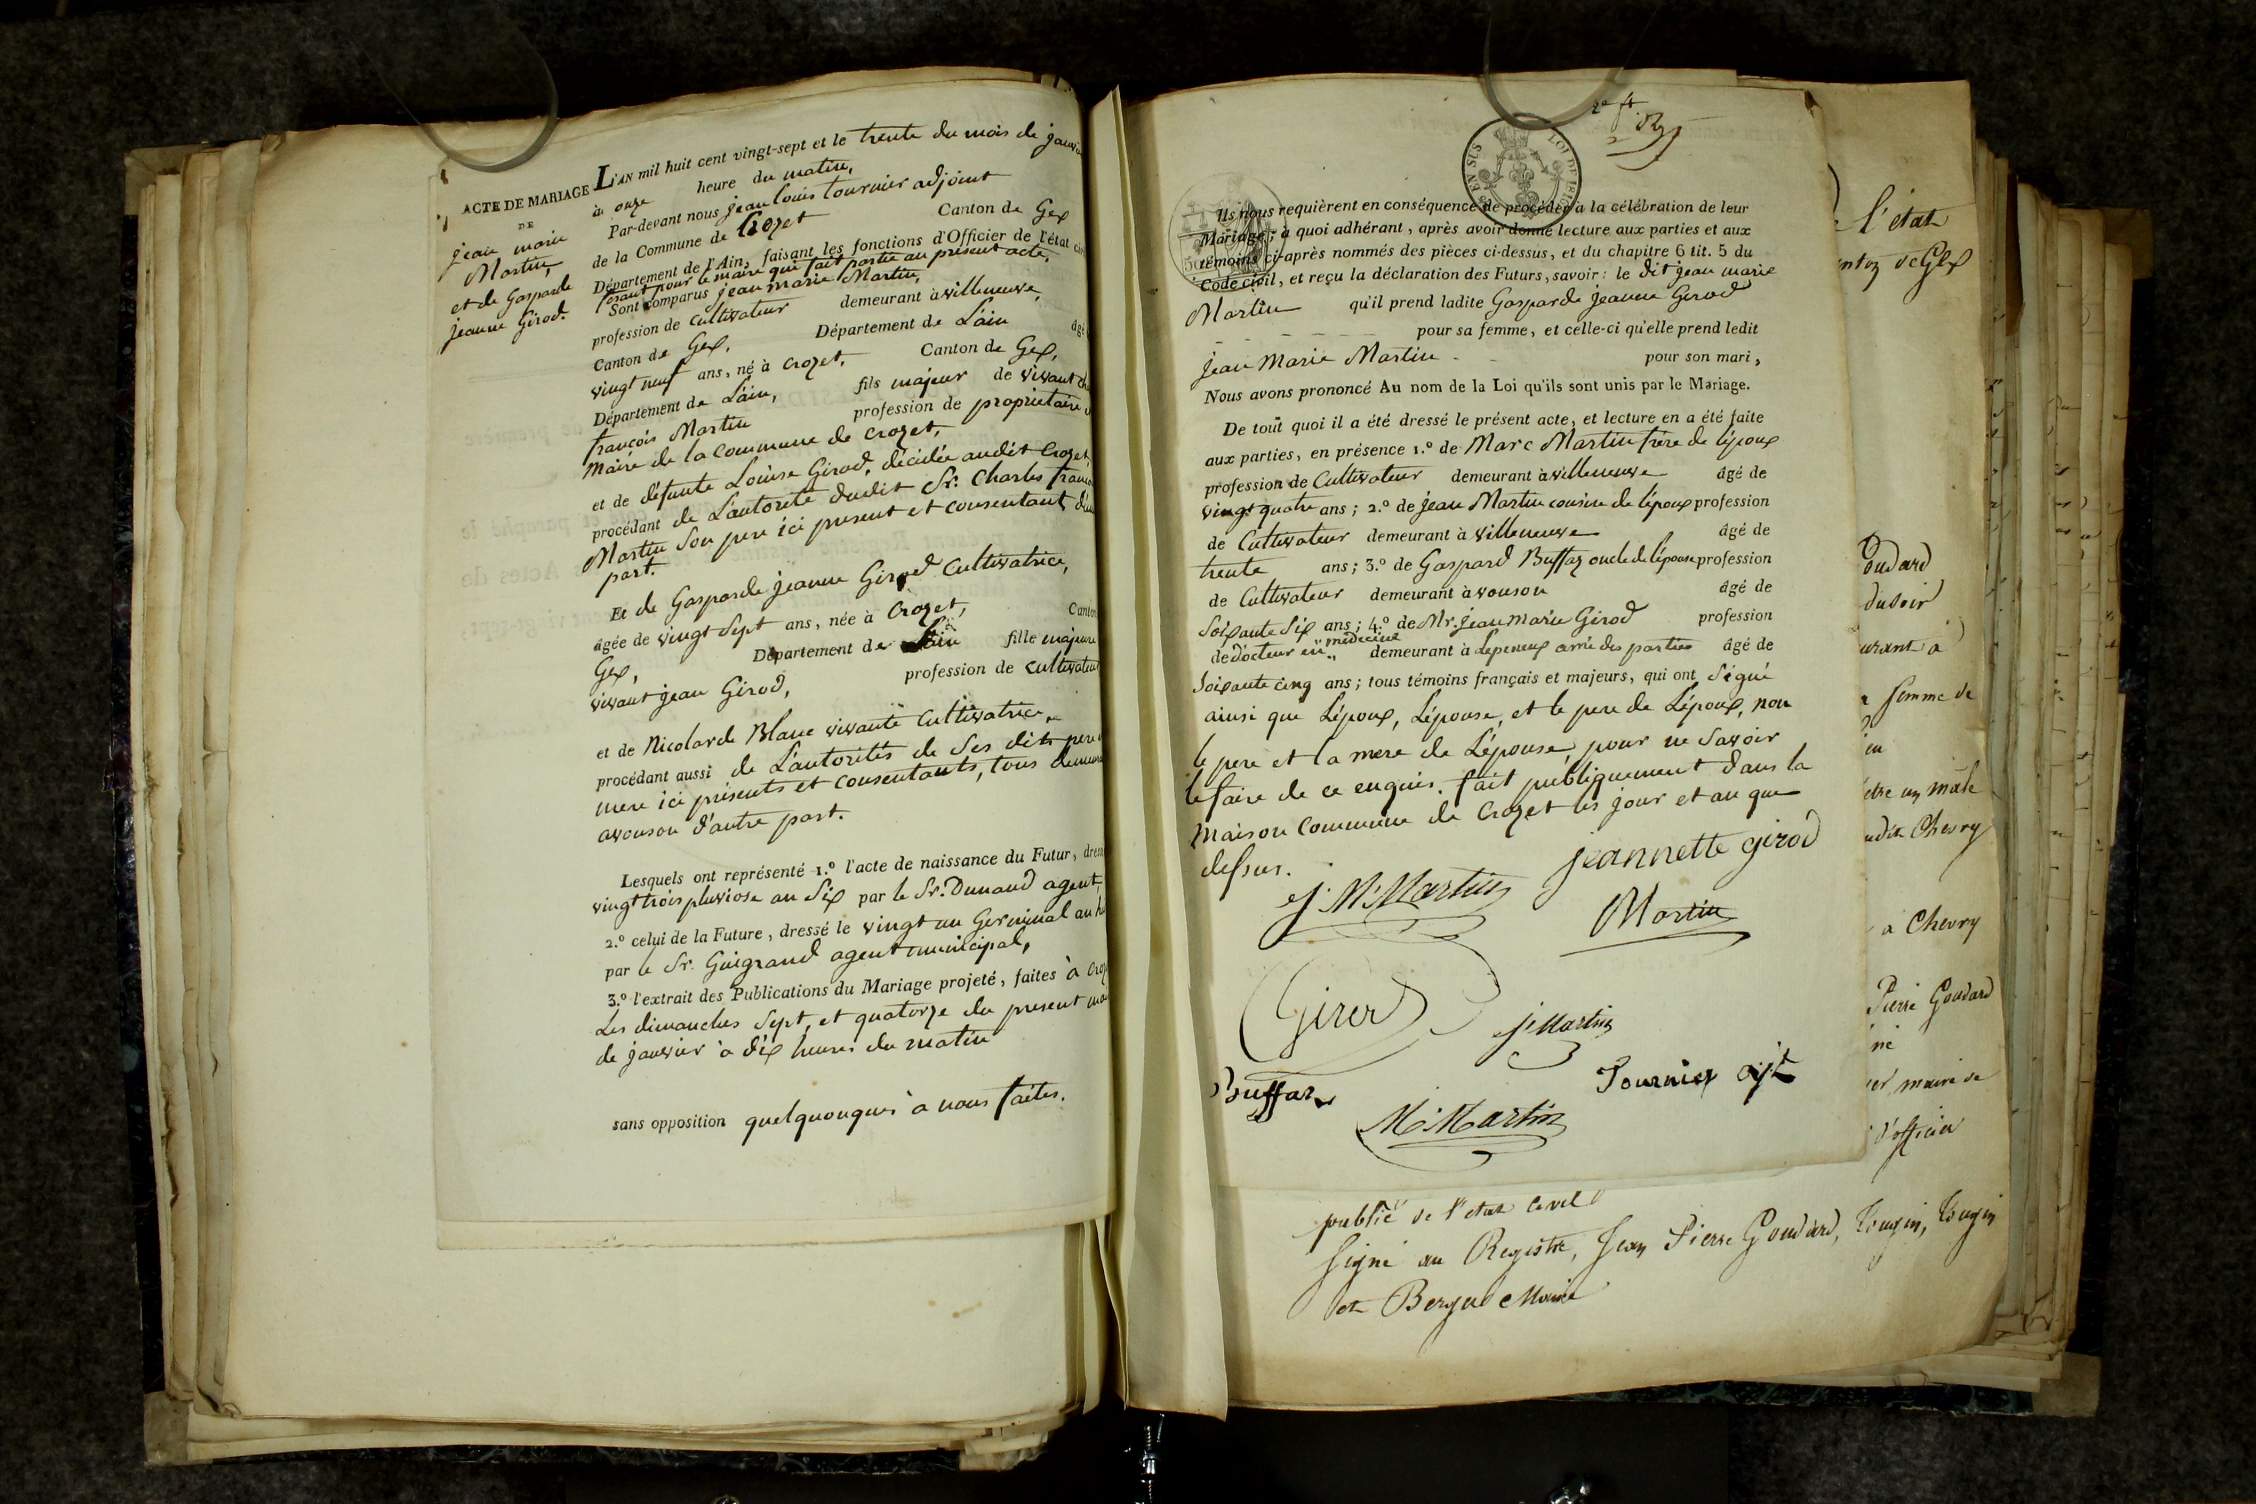 ACTE DE MARIAGE
DE
jean marie
Martin,
et de Gasparde
jeanne Girod.
L'AN mil huit cent vingt-sept et le trente du mois de janvier
à onze heure du matin,
Par-devant nous jean Louis tournier adjoint
de la Commune de Crozet Canton de Gex
Département de l'Ain, faisant les fonctions d'Officier de l'état civ
pour le maire qui fait partie au présent acte,
Sont comparus jean marie Martin,
profession de Cultivateur demeurant à villeneuve,
Canton de Gex, Département de L'ain âgé
vingt neuf ans, né à Crozet, Canton de Gex,
Département de L'ain, fils majeur de vivant
françois Martin profession de propriétaire
Maire de la Commune de Crozet,
et de défunte Louise Girod, décédée audit Crozet,
procédant de L'autorité dudit Sr. Charles françois
Martin Son pere ici présent et consentant d'une
part.
Et de Gasparde jeanne Girod Cultivatrice,
âgée de vingt Sept ans, née à Crozet, Canton
Gex, Département de L'ain fille majeure
vivant jean Girod, profession de cultivateur
et de Nicolarde Blanc vivante Cultivatrice,
procédant aussi de L'autorités de Ses dits pere
mere ici présents et consentants, tous demeura
avouson d'autre part.
Lesquels ont représenté 1.º l'acte de naissance du Futur, dressé
vingt trois pluviose an Six par le Sr. Dunand agent,
2.º celui de la Future, dressé le vingt un Germinal an h
par le Sr. Guigrand agent municipal,
3.º l'extrait des Publications du Mariage projeté, faites à Croz
Les dimanches Sept, et quatorze du present mois
de janvier à dix heures du matin
sans opposition quelquonques à nous faites.
Ils nous requièrent en conséquence de procéder à la célébration de leur
Mariage; à quoi adhérant, après avoir donné lecture aux parties et aux
témoins ci-après nommés des pièces ci-dessus, et du chapitre 6 tit. 5 du
Code civil, et reçu la déclaration des Futurs, savoir: le dit jean marie
Martin qu'il prend ladite Gasparde jeanne Girod
pour sa femme, et celle-ci qu'elle prend ledit
jean Marie Martin pour son mari,
Nous avons prononcé Au nom de la Loi qu'ils sont unis par le Mariage.
De tout quoi il a été dressé le présent acte, et lecture en a été faite
aux parties, en présence 1.º de Marc Martin frère de lépoux
profession de Cultivateur demeurant à villeneuve âgé de
vingt quatre ans; 2.º de jean Martin cousin de lépoux profession
de Cultivateur demeurant à villeneuve âgé de
trente ans; 3.º de Gaspard Buffaz oncle de lépouse profession
de Cultivateur demeurant à vouson âgé de
Soixante Six ans; 4.º de Mr. jean marie Girod profession
de docteur en médecine demeurant à Lepeneux ami des parties âgé de
Soixante cinq ans; tous témoins français et majeurs, qui ont Signé
ainsi que Lépoux, Lépouse, et le pere de Lépoux, non
le pere et la mere de Lépouse, pour ne Savoir
le faire de ce enquis. fait publiquement dans la
Maison Commune de Crozet les jour et an que
dessus.
J. M. Martin
jeannette girod
Martin
Girod
j. Martin
Buffaz
Tournier ajt
M. Martin
l'état
Gex
Goudard
du soir
urant à
femme de
en
être un mâle
udit Chevry
à Chevry
Pierre Goudard
né
maire de
d'officier
public de l'etat civil
signé au Registre, Jean Pierre Goudard, Tougin, Tougin
et Bergeremaire